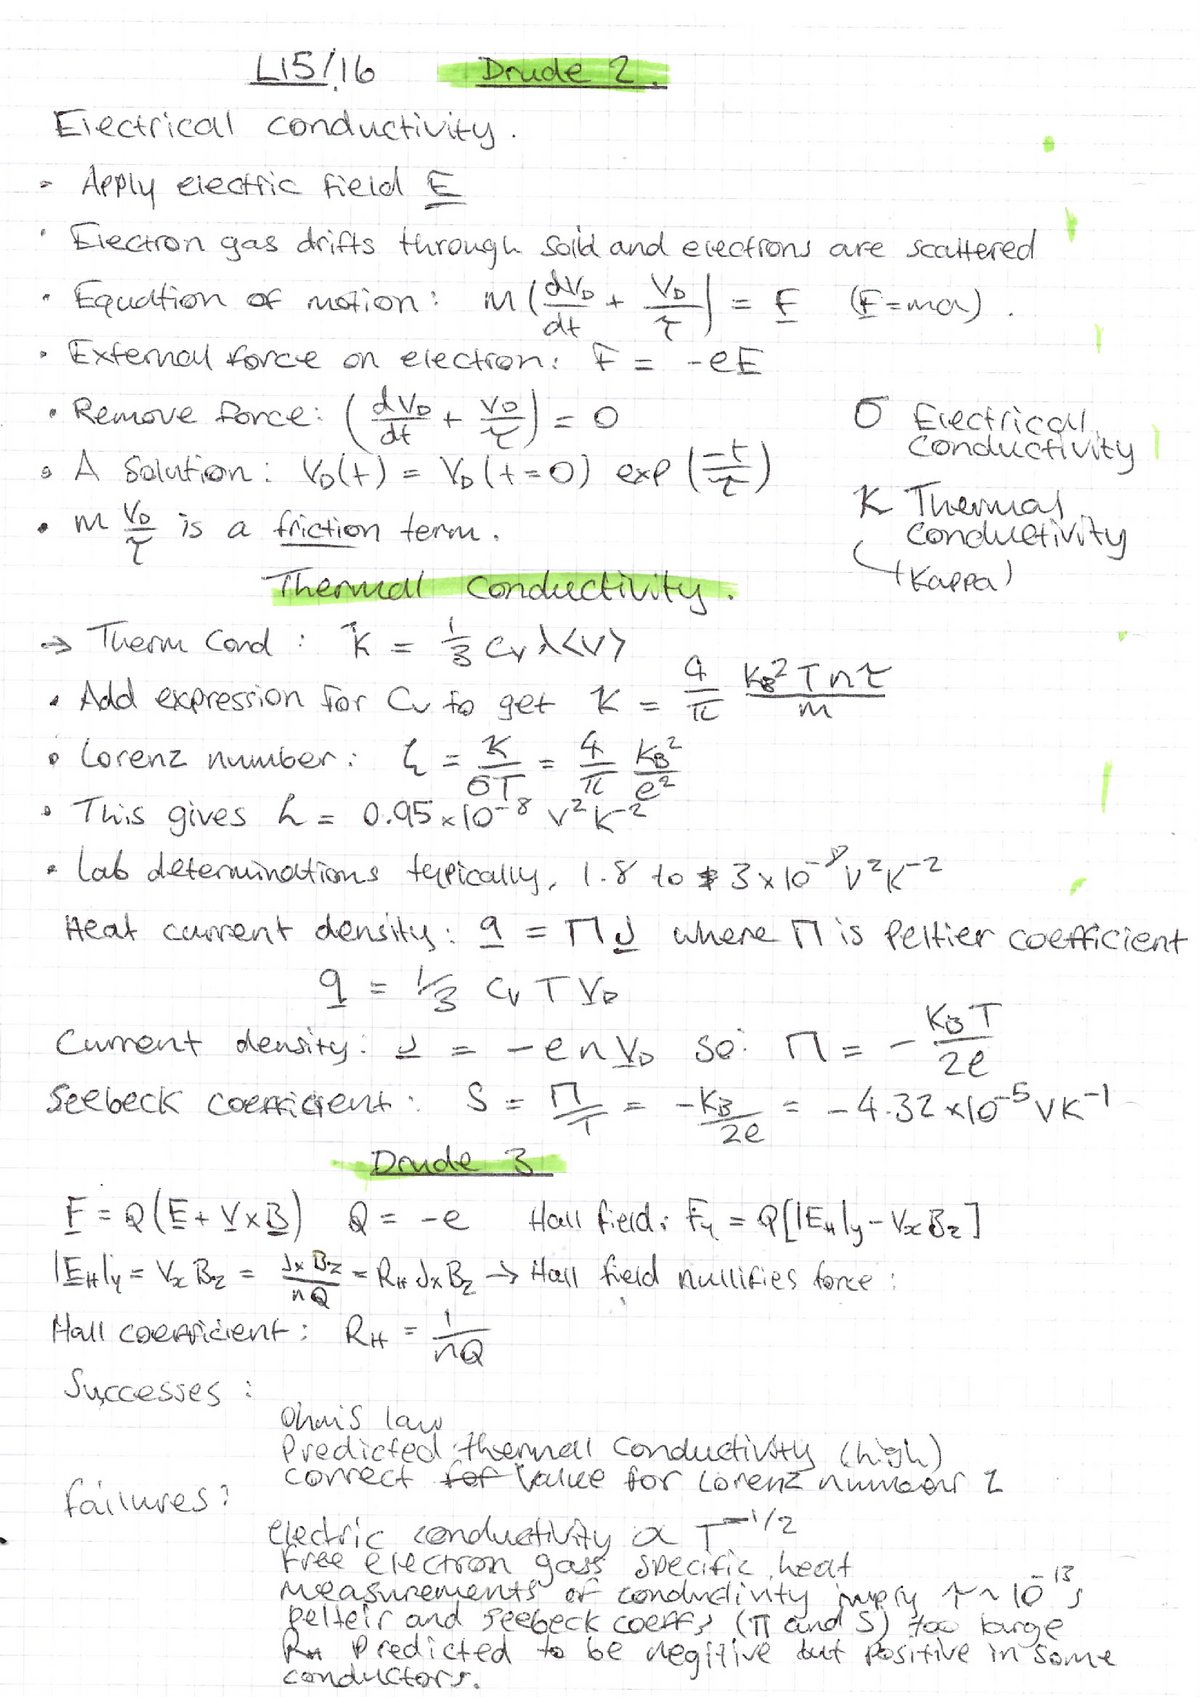 L15/16 Drude 2.
Electrical conductivity.
• Apply electric field E
• Electron gas drifts through solid and electrons are scattered
• Equation of motion: m(dV_D/dt + V_D/τ) = F (F=ma).
• External force on electron: F = -eE
• Remove force: (dV_D/dt + V_D/τ) = 0
σ Electrical conductivity
• A solution: V_D(t) = V_D(t=0) exp(-t/τ)
K Thermal conductivity
(Kappa)
• m V_D/τ is a friction term.
Thermal Conductivity.
→ Therm Cond: K = 1/3 C_v λ<v>
• Add expression for C_v to get K = 4/π K_B² T n τ / m
• Lorenz number: L = K/σT = 4/π K_B²/e²
• This gives L = 0.95 x 10⁻⁸ V² K⁻²
• Lab determinations typically, 1.8 to 3 x 10⁻⁸ V² K⁻²
Heat current density: q = Π J where Π is Peltier coefficient
q = 1/3 C_v T V_D
Current density: J = -e n V_D so: Π = - K_B T / 2e
Seebeck coefficient: S = Π/T = -K_B/2e = -4.32 x 10⁻⁵ V K⁻¹
Drude 3
F = Q(E + V x B) Q = -e Hall field: F_y = Q[|E_H|y - V_x B_z]
|E_H|y = V_x B_z = J_x B_z / nQ = R_H J_x B_z → Hall field nullifies force:
Hall coefficient: R_H = 1/nQ
Successes:
Ohm's law
Predicted thermal conductivity (high)
correct value for Lorenz number L
failures:
electric conductivity α T^-1/2
Free electron gass specific heat
measurements of conductivity imply τ ~ 10⁻¹³ s
pelteir and seebeck coeffs (Π and S) too large
R_H predicted to be negitive but positive in some
conductors.